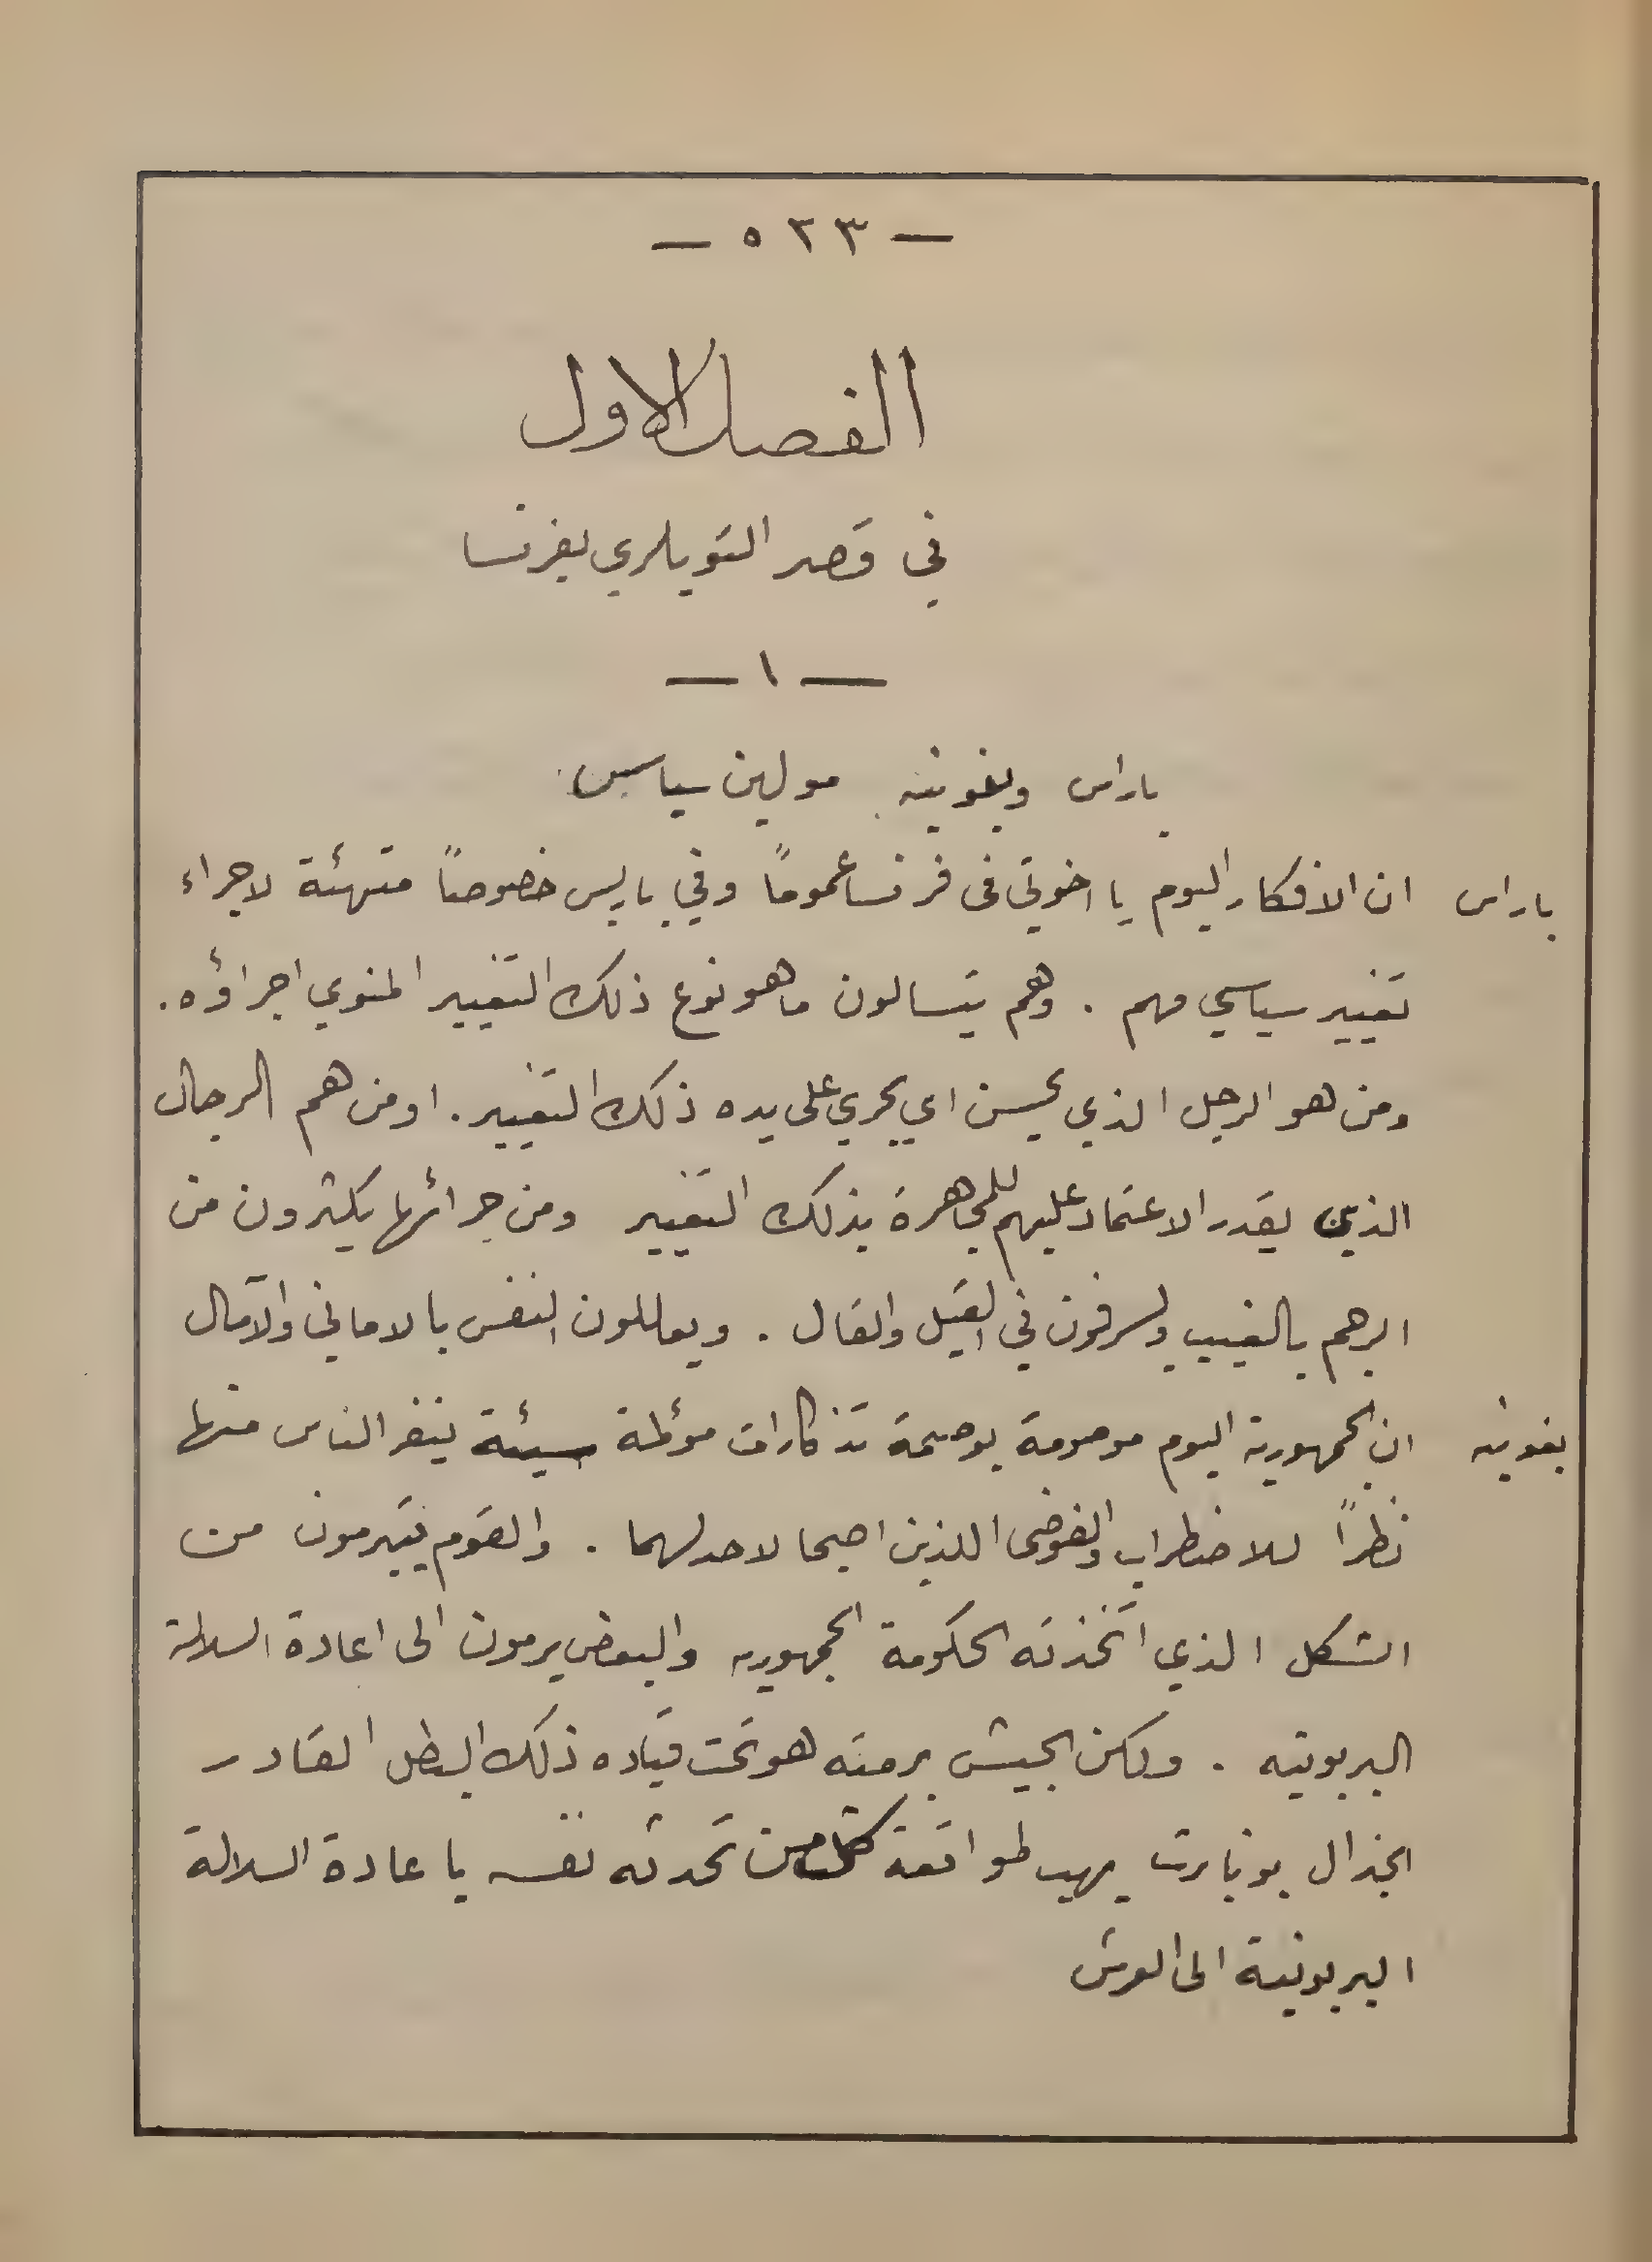 — ٥٢٣ —
الفصل الاول
في قصر التويلري بفرنسا
— ١ —
باراس وبغونيه مولين سياسين
باراس ان الافكار اليوم يا اخوتي فى فرنسا عموماً وفي باريس خصوصاً متهئة لاجراء
تغيير سياسي مهم . وهم يتسالون ما هو نوع ذلك التغيير المنوي اجراؤه .
ومن هو الرجل الذي يحسن اي يجري على يده ذلك التغيير . او من هم الرجال
الذين يقدر الاعتماد عليهم للمجاهرة بذلك التغيير ومن جرائها يكثرون من
الرجم بالغيب ويسرفون في القيل والقال . ويعللون النفس بالاماني والآمال
بغونيه ان الجمهورية اليوم موصومة بوصمة تذكارات مؤلمة سيئة ينفر الناس منها
نظراً للاضطراب والفوضى اللذين اصبحا لاحد لهما . والقوم يتبرمون من
الشكل الذي اتخذته الحكومة الجمهوريه والبعض يرمون الى اعادة السلالة
البربونيه . ولكن الجيش برمته هو تحت قياده ذلك البطل القادر
الجنرال بونابرت مهيب لموافقة كل من تحدثه نفسه باعادة السلالة
البربونية الى العرش